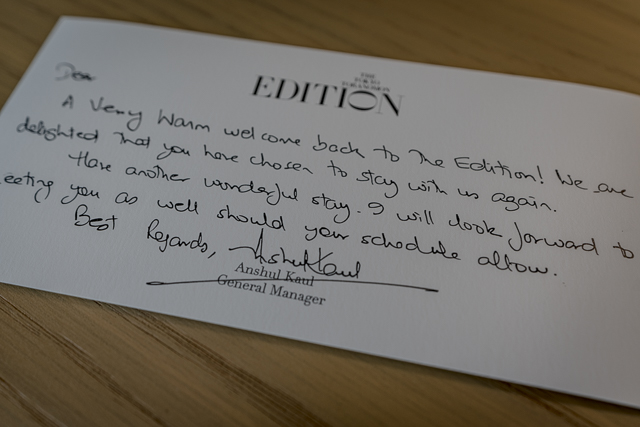 Dear
THE
TOKYO
TORANOMON
EDITION
A Very Warm welcome back to The Edition! We are
delighted that you have chosen to stay with us again.
Have another wonderful stay. I will look forward to
eeting you as well should your schedule allow.
Best Regards, Anshul Kaul
Anshul Kaul
General Manager